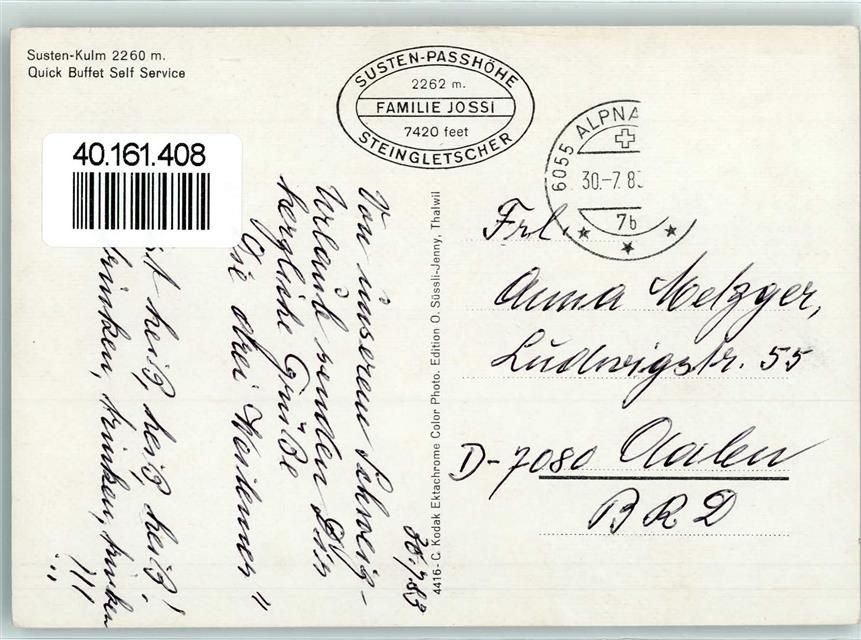 Susten-Kulm 2260 m.
Quick Buffet Self Service
SUSTEN-PASSHÖHE
2262 m.
FAMILIE JOSSI
7420 feet
STEINGLETSCHER
6055 ALPNA
30.-7.8
7b
40.161.408
30.7.83
Von unserem Schweiz-
Urlaub senden Dir
herzliche Grüße
"Die drei
heiß, heiß, heiß!
trinken, trinken, trinken
...!!!
4416- C Kodak Ektachrome Color Photo. Edition O. Süssli-Jenny, Thalwil
Frl.
Anna Metzger,
Ludwigstr. 55
D-7080 Aalen
BRD